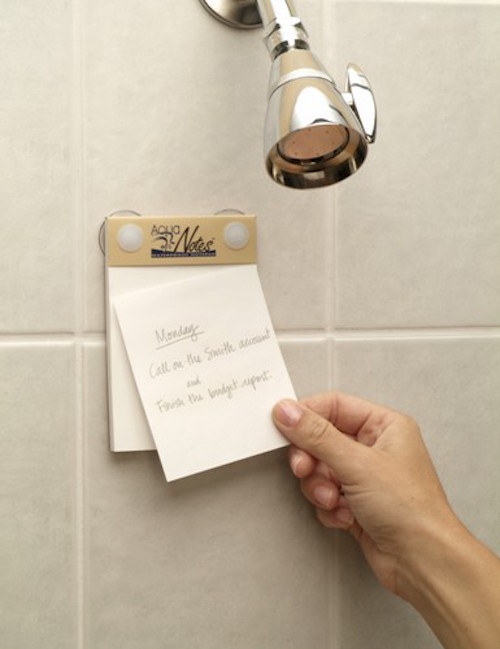 AQUA
Notes
WATERPROOF NOTEPAD
Monday
Call on the Smith account
and
Finish the budget report.